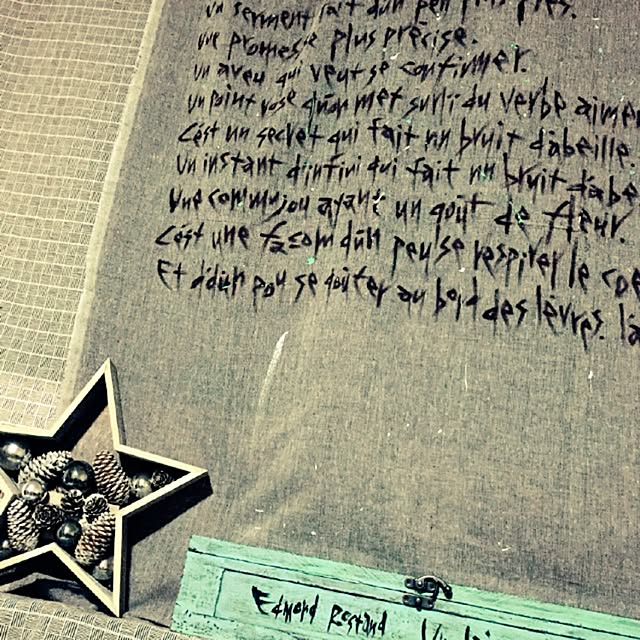 un serment fait d'un peu plus près.
une promesse plus précise.
un aveu qui veut se confirmer.
un point rose qu'on met sur l'i du verbe aimer
C'est un secret qui fait un bruit d'abeille.
Un instant d'infini qui fait un bruit d'abe
Une commujou ayant un goût de fleur.
C'est une facom d'un peu se respirer le coe
Et d'un pou se goûter au bord des lèvres. l'a
Edmond Rostand